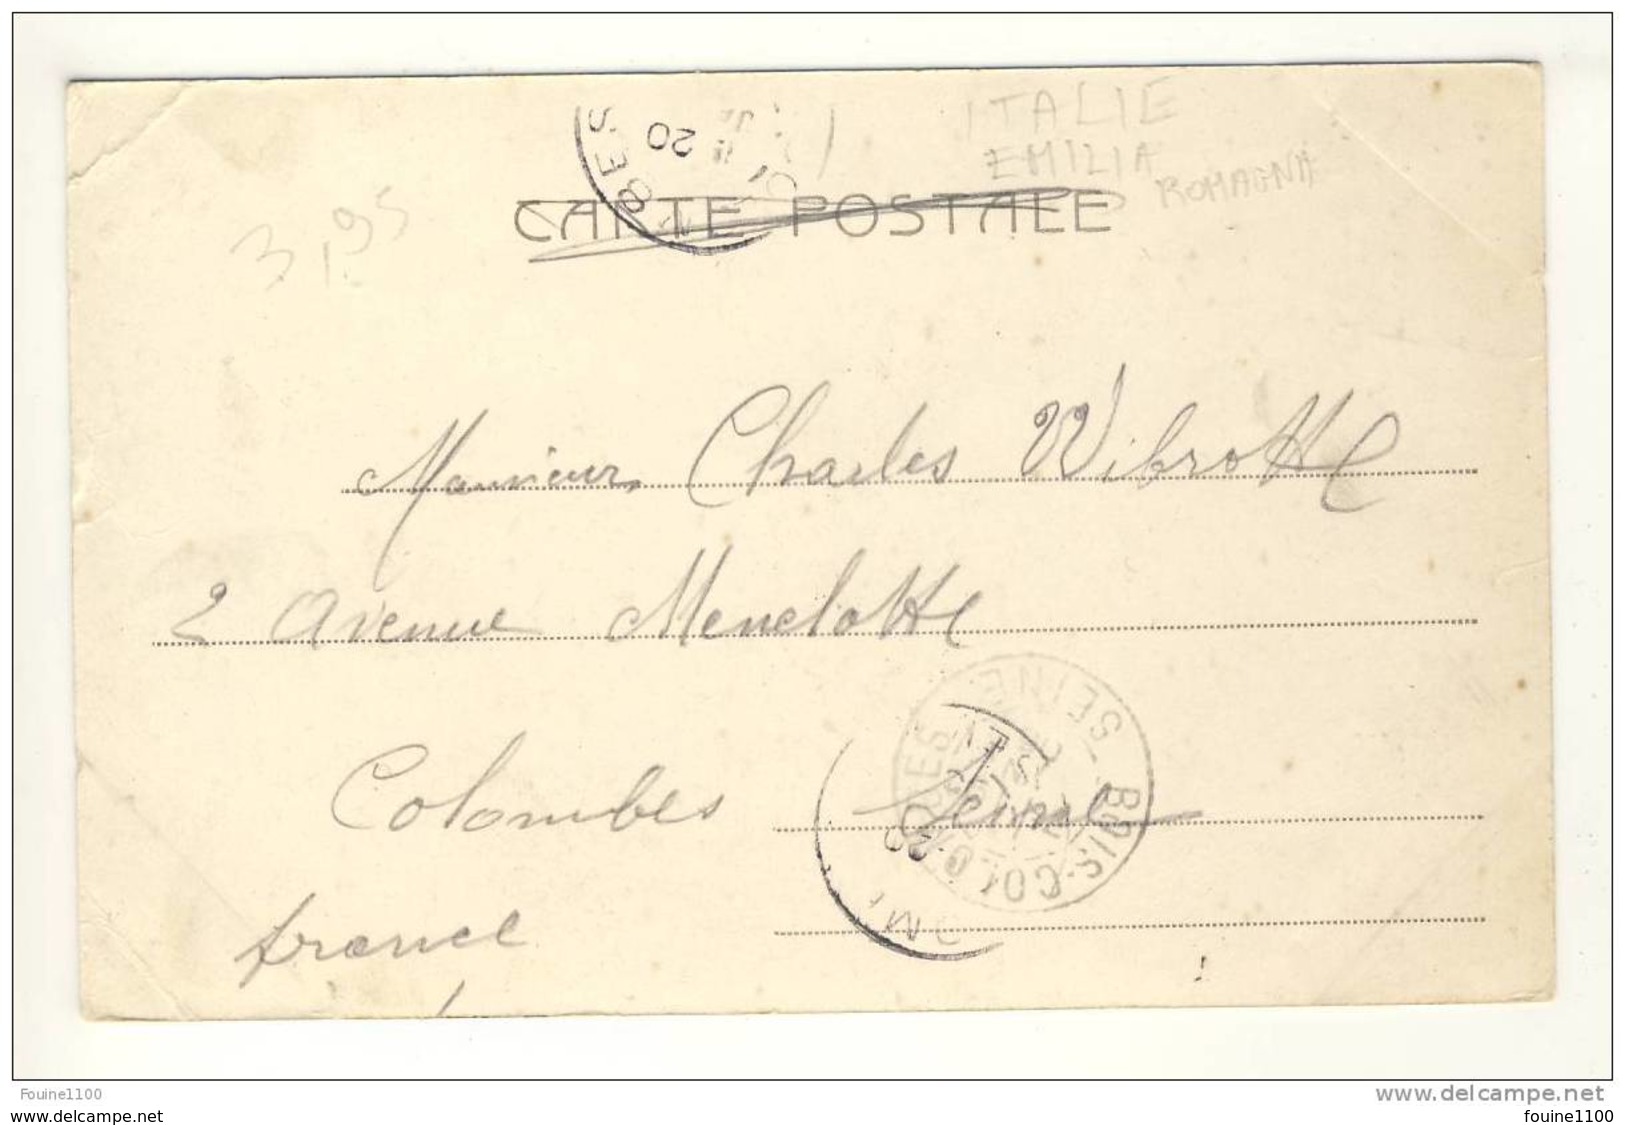 ITALIE
EMILIA
ROMAGNA
BES
20
3,95
CARTE POSTALE
Monsieur Charles Wibrotte
2 Avenue Menelotte
Colombes Seine
BOIS-COLOMBES SEINE
france
Fouine1100
www.delcampe.net
www.delcampe.net
fouine1100